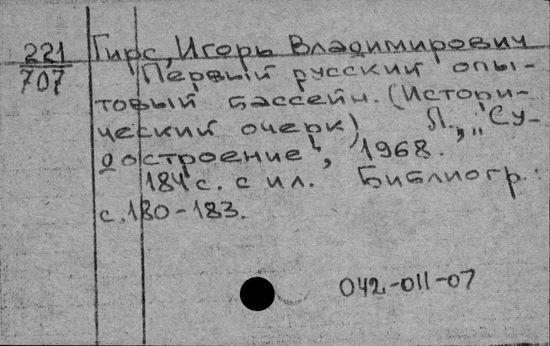 221
707
Гирс, Игорь Владимирович
Первый русский опы-
товый бассейн. (Истори-
ческий очерк) Л., „Су-
достроение", 1968.
184 с. с ил. Библиогр.:
с. 180-183.
042-011-07